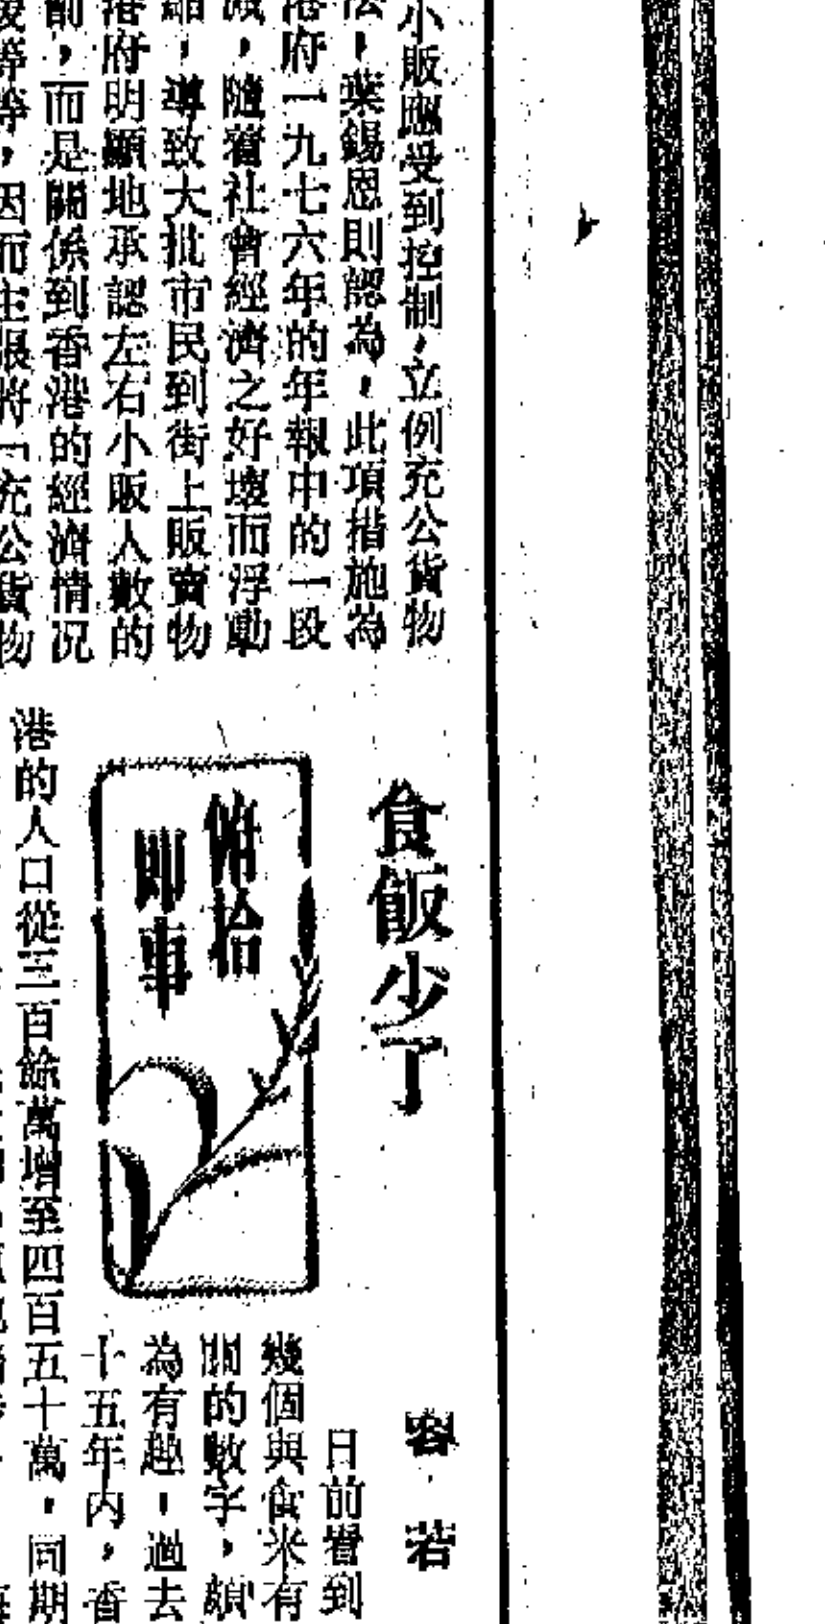 小販應受到控制，立例充公貨物
法，葉錫恩則認為，此項措施為
港府一九七六年的年報中的一段
減，隨着社會經濟之好壞而浮動
縮，導致大批市民到街上販賣物
港府明顯地承認左右小販人數的
前，而是關係到香港的經濟情況
等等，因而主張將「充公貨物
食飯少了
容若
俯拾
即事
日前看到
幾個與食米有
關的數字，頗
為有趣，過去
十五年內，香
港的人口從三百餘萬增至四百五十萬，同期